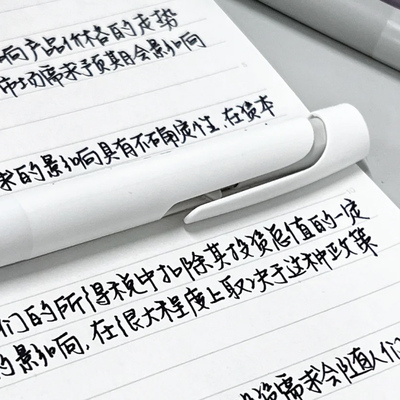 响产品价格的走势
市场需求预期会影响
求的影响具有不确定性,在资本
们的所得税中扣除其投资总值的一定
的影响,在很大程度上取决于这种政策
资需求会随人们